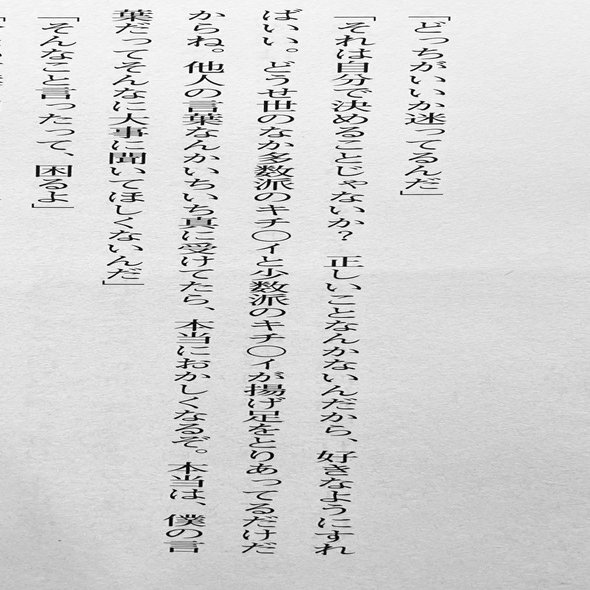 「どっちがいいか迷ってるんだ」
「それは自分で決めることじゃないか？　正しいことなんかないんだから、好きなようにすれ
ばいい。どうせ世のなか多数派のキチ〇イと少数派のキチ〇イが揚げ足をとりあってるだけだ
からね。他人の言葉なんかいちいち真に受けてたら、本当におかしくなるぞ。本当は、僕の言
葉だってそんなに大事に聞いてほしくないんだ」
「そんなこと言ったって、困るよ」